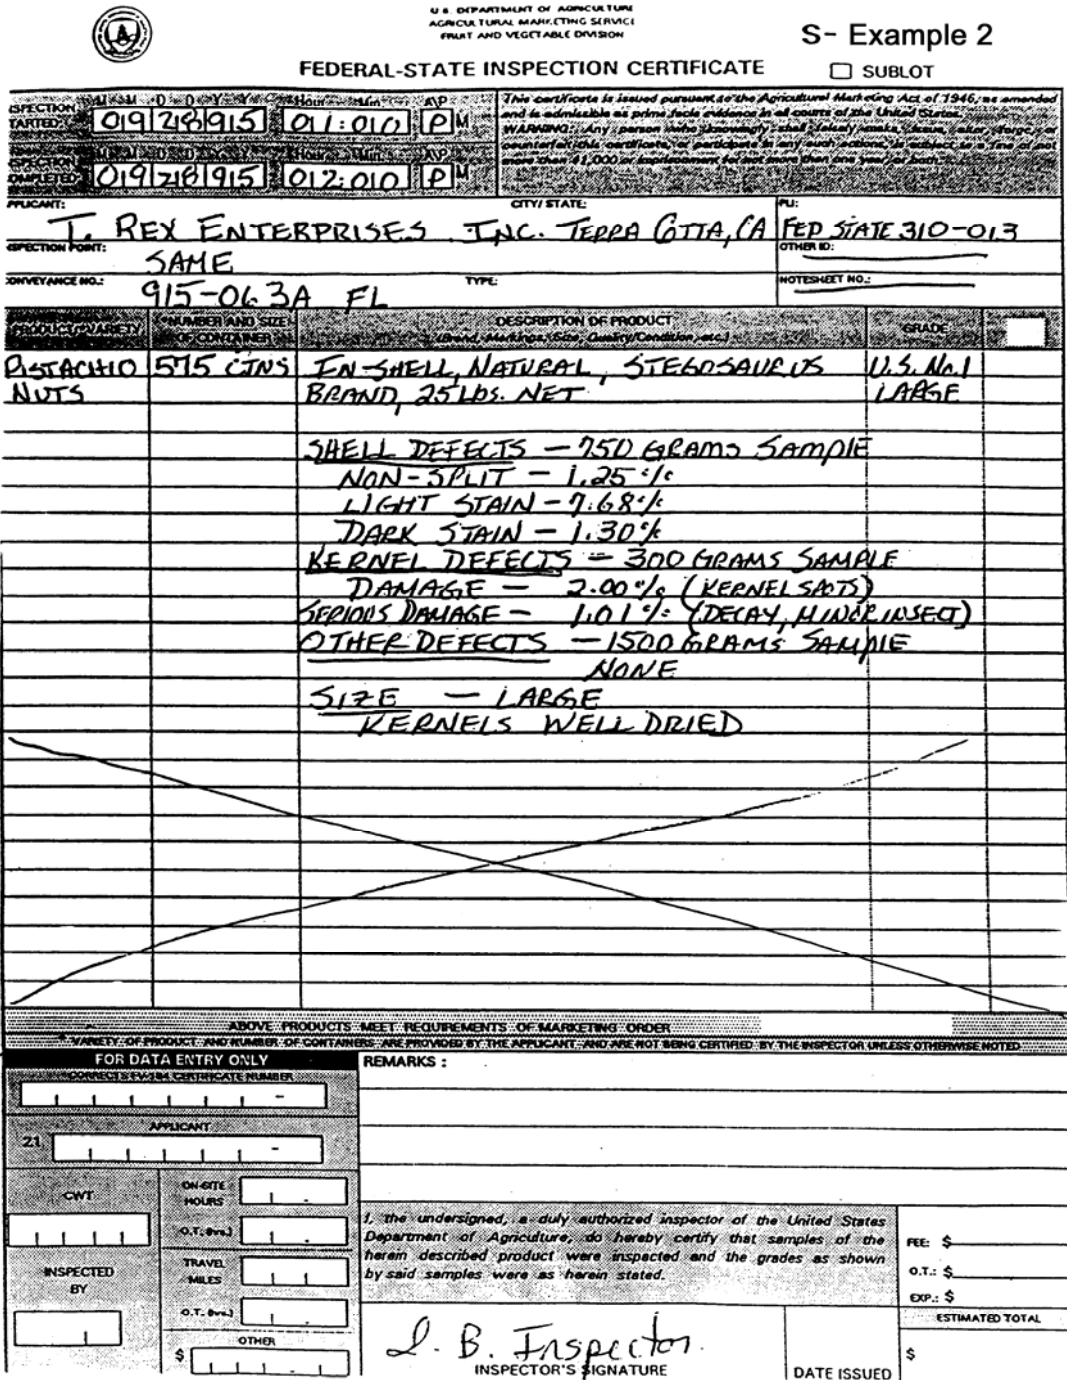 U.S. DEPARTMENT OF AGRICULTURE
AGRICULTURAL MARKETING SERVICE
FRUIT AND VEGETABLE DIVISION
S- Example 2
FEDERAL-STATE INSPECTION CERTIFICATE
SUBLOT
INSPECTION STARTED: M M D D Y Y Hour Min A/P
09 28 95 01:00 P M
INSPECTION COMPLETED: M M D D Y Y Hour Min A/P
09 28 95 02:00 P M
This certificate is issued pursuant to the Agricultural Marketing Act of 1946, as amended
and is admissible as prime facie evidence in all courts of the United States.
WARNING: Any person who knowingly shall falsely make, issue, alter, forge, or
counterfeit this certificate, or participate in any such actions, is subject to a fine of not
more than $1,000 or imprisonment for not more than one year, or both.
APPLICANT: CITY/ STATE: PLI:
T. REX ENTERPRISES INC. TERRA COTTA, CA FED STATE 310-013
INSPECTION POINT: OTHER ID:
SAME
CONVEYANCE NO.: TYPE: NOTESHEET NO.:
915-063A FL
PRODUCT/VARIETY *NUMBER AND SIZE OF CONTAINER DESCRIPTION OF PRODUCT GRADE
(Brand, Markings, Size, Quality/Condition, etc.)
PISTACHIO 575 CTNS IN-SHELL, NATURAL, STEGOSAURUS U.S. No. 1
NUTS BRAND, 25 Lbs. NET LARGE
SHELL DEFECTS – 750 GRAMS SAMPLE
NON-SPLIT – 1.25 %
LIGHT STAIN – 7.68 %
DARK STAIN – 1.30 %
KERNEL DEFECTS – 300 GRAMS SAMPLE
DAMAGE – 2.00 % (KERNEL SPOTS)
SERIOUS DAMAGE – 1.01 % (DECAY, MINOR INSECT)
OTHER DEFECTS – 1500 GRAMS SAMPLE
NONE
SIZE – LARGE
KERNELS WELL DRIED
ABOVE PRODUCTS MEET REQUIREMENTS OF MARKETING ORDER
* VARIETY OF PRODUCT AND NUMBER OF CONTAINERS ARE PROVIDED BY THE APPLICANT AND ARE NOT BEING CERTIFIED BY THE INSPECTOR UNLESS OTHERWISE NOTED
FOR DATA ENTRY ONLY
REMARKS :
CORRECTS FV-184 CERTIFICATE NUMBER
-
APPLICANT
21 -
CWT
ON-SITE HOURS
O.T. (hrs.)
INSPECTED BY
TRAVEL MILES
O.T. (hrs.)
OTHER
$
I, the undersigned, a duly authorized inspector of the United States
Department of Agriculture, do hereby certify that samples of the
herein described product were inspected and the grades as shown
by said samples were as herein stated.
FEE: $
O.T.: $
EXP.: $
ESTIMATED TOTAL
$
I. B. Inspector
INSPECTOR'S SIGNATURE
DATE ISSUED